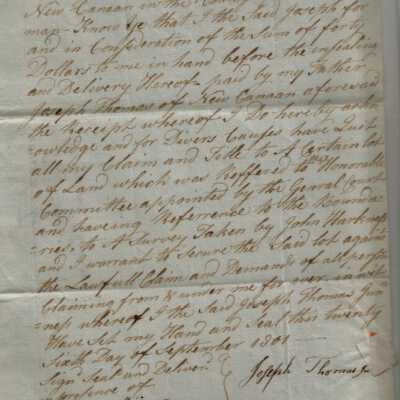 New Canaan in the County
man Know ye that I the Said Joseph for
and in Consideration of the Sum of forty
Dollars to me in hand before the insealing
and Delivery Hereof paid by my Father
Joseph Thomas of New Canaan aforesaid
the Receipt whereof I Do hereby ackn
=owledge and for Divers Causes have Quit
all my Claim and Title to A Certain lot
of Land which was Reffered to the Honorable
Committee appointed by the Genral Court
and haveing Referrence to the Bounda=
=ries, to A Survey Taken by John Harkness
and I warrant to Secure the Said lot against
the Lawfull Claim and Demands of all persons
Claiming from & under me for ever in wit=
=ness whereof I the Said Joseph Thomas Jun
Have Set my Hand and Seal this Twenty
Sixth Day of September 1801
Sign Seal and Deliver
Joseph Thomas Jr
presence of